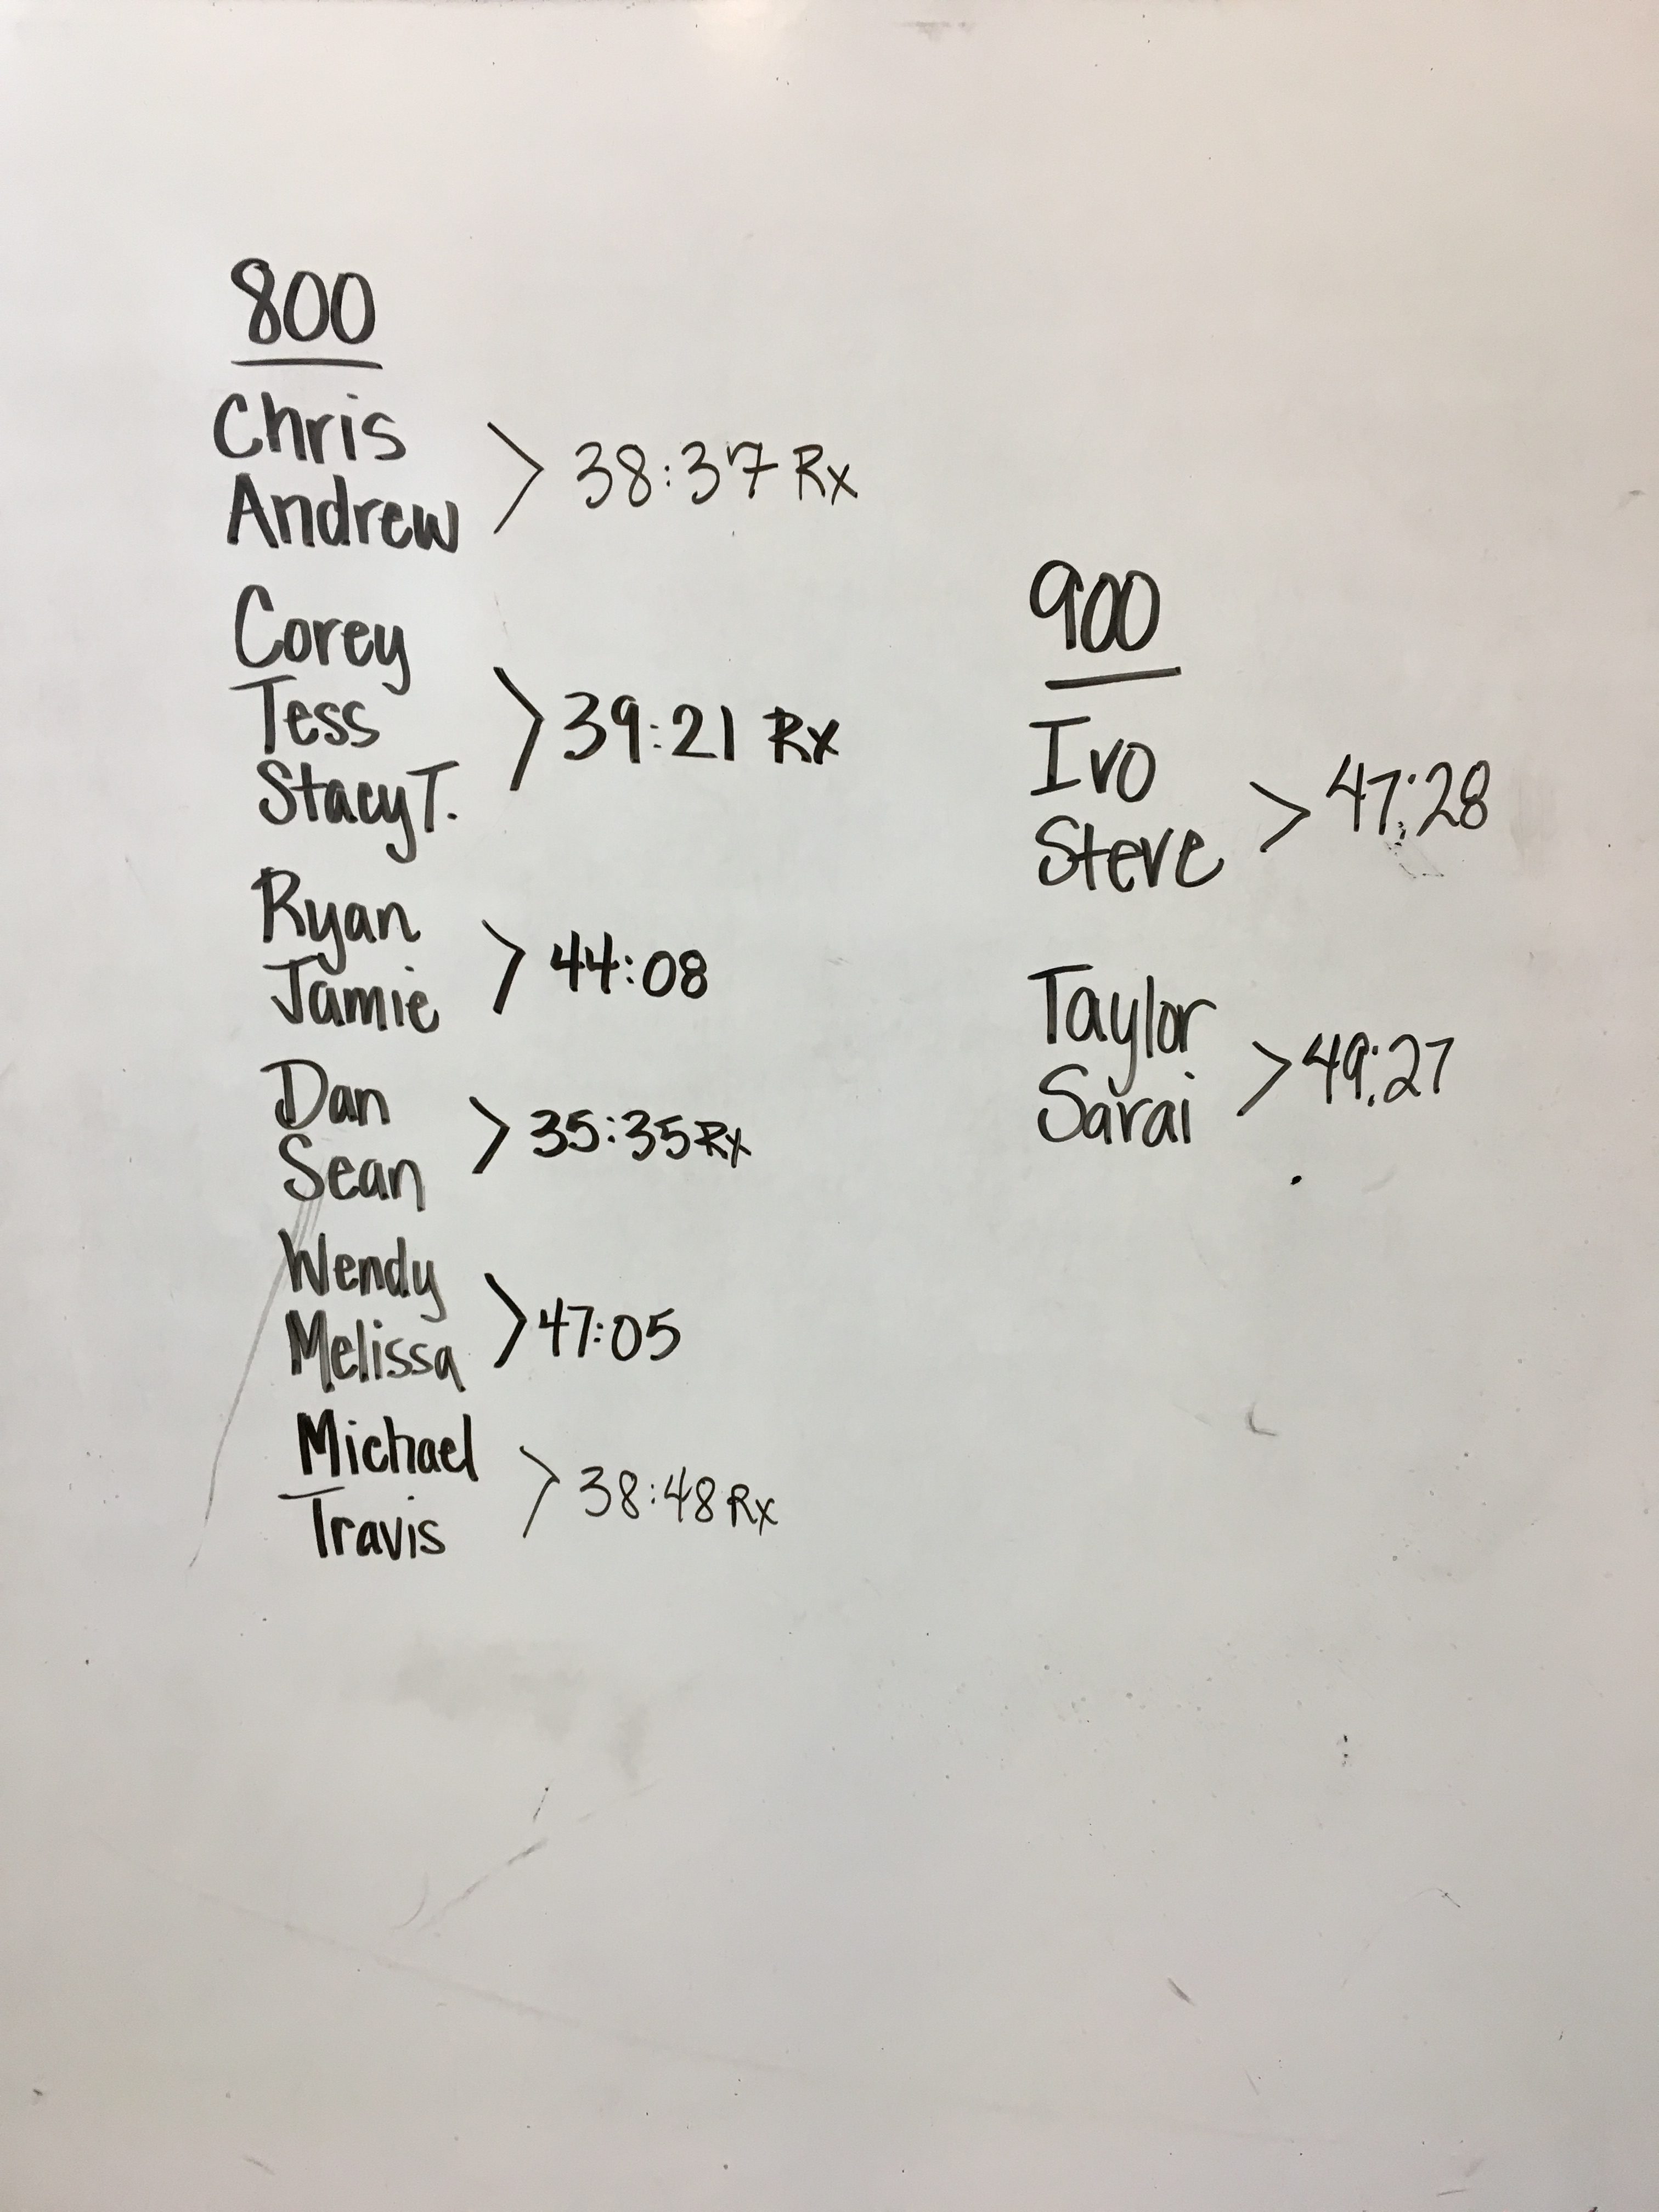 800
Chris
Andrew
> 38:37 Rx
Corey
Tess
Stacy T.
> 39:21 Rx
Ryan
Jamie
> 44:08
Dan
Sean
> 35:35 Rx
Wendy
Melissa
> 47:05
Michael
Travis
> 38:48 Rx
900
Ivo
Steve
> 47:28
Taylor
Sarai
> 49:27